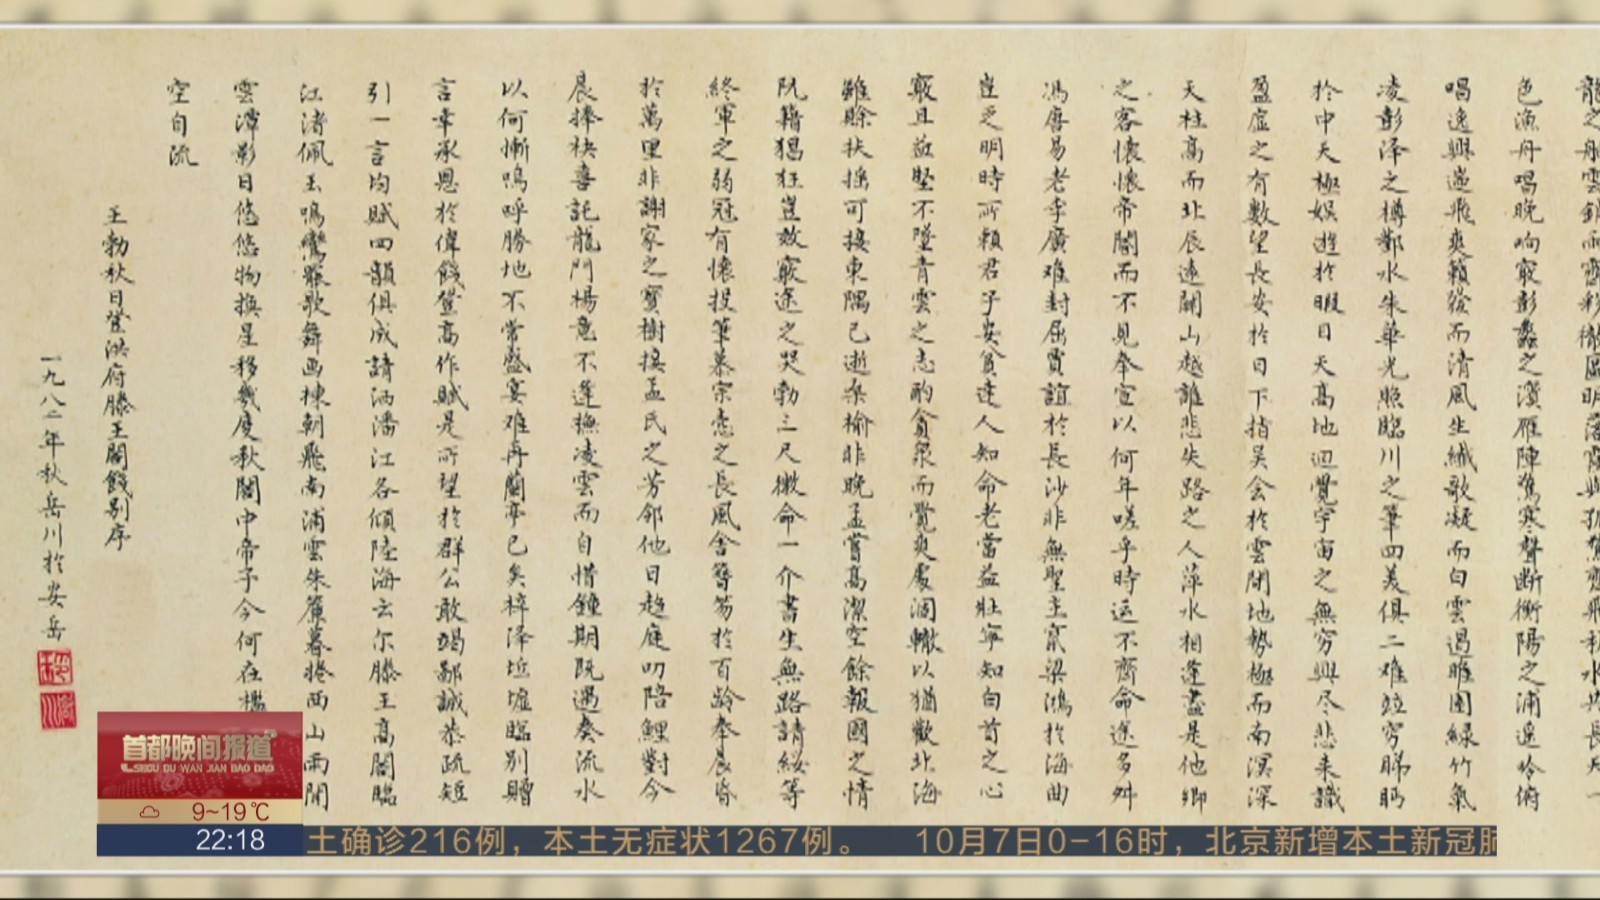 龍之舳雲銷雨霽彩徹區明落霞與孤鶩齊飛秋水共長天一
色漁舟唱晚响窮彭蠡之濱雁陣驚寒聲断衡陽之浦遥吟俯
唱逸興遄飛爽籟發而清風生纖歌凝而白雲遏睢園綠竹氣
凌彭泽之樽鄴水朱華光照臨川之筆四美俱二难竝穷睇眄
於中天極娱遊於暇日天高地迥覺宇宙之無穷興尽悲来識
盈虚之有數望長安於日下指吴会於雲間地勢極而南溟深
天柱高而北辰遠關山越誰悲失路之人萍水相逢盡是他鄉
之客懷懷帝閽而不見奉宣以何年嗟乎時运不齊命途多舛
馮唐易老李廣难封屈賈誼於長沙非無聖主竄梁鴻於海曲
豈乏明時所賴君子安貧達人知命老當益壯寧知白首之心
窮且益堅不墜青雲之志酌貪泉而覺爽處涸轍以猶歡北海
雖賖扶摇可接東隅已逝桑榆非晚孟嘗高潔空餘報國之情
阮籍猖狂豈效窮途之哭勃三尺微命一介書生無路請纓等
終軍之弱冠有懷投筆慕宗悫之長風舍簪笏於百龄奉晨昏
於萬里非謝家之寳樹接孟氏之芳邻他日趋庭叨陪鯉對今
晨捧袂喜託龍門楊意不逢撫凌雲而自惜鍾期既遇奏流水
以何慚鳴呼勝地不常盛宴难再蘭亭已矣梓泽坵墟臨别贈
言幸承恩於偉餞登高作賦是所望於群公敢竭鄙誠恭疏短
引一言均赋四韻俱成請洒潘江各傾陸海云尔滕王高閣臨
江渚佩玉鳴鸞罷歌舞画棟朝飛南浦雲朱簾暮捲西山雨閒
雲潭影日悠悠物换星移幾度秋閣中帝子今何在檻
空自流
王勃秋日登洪府滕王閣餞别序
一九八二年秋岳川於安岳
首都晚间报道
SHOU DU WAN JIAN BAO DAO
9~19℃
22:18
土确诊216例，本土无症状1267例。 10月7日0-16时，北京新增本土新冠肺